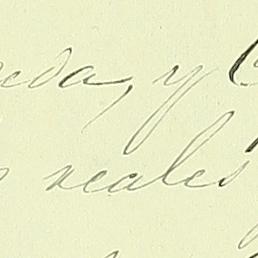 eda, y C
s reales